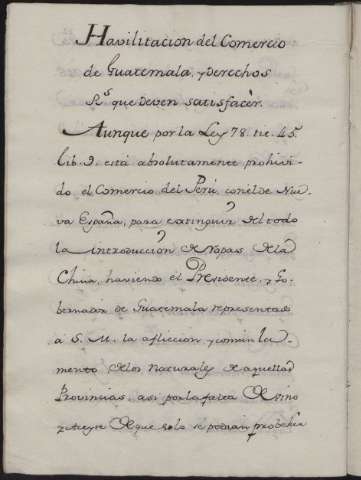 Havilitacion del Comercio
de Guatemala, y Derechos
Rs. que deven satisfacèr.
Aunque por la Ley 78. tit. 45.
lib. 9. està absolutamente prohivi-
do el Comercio del Perù con el de Nue-
va España, para extinguir del todo
la introduccion de ropas de la
China, haviendo el Presidente, y Go-
bernador de Guatemala representado
a S. M. la afliccion y
mento de los Naturales de aquellas
Provincias, asi por la falta de vino
y Azeyte de que solo se podian probeher